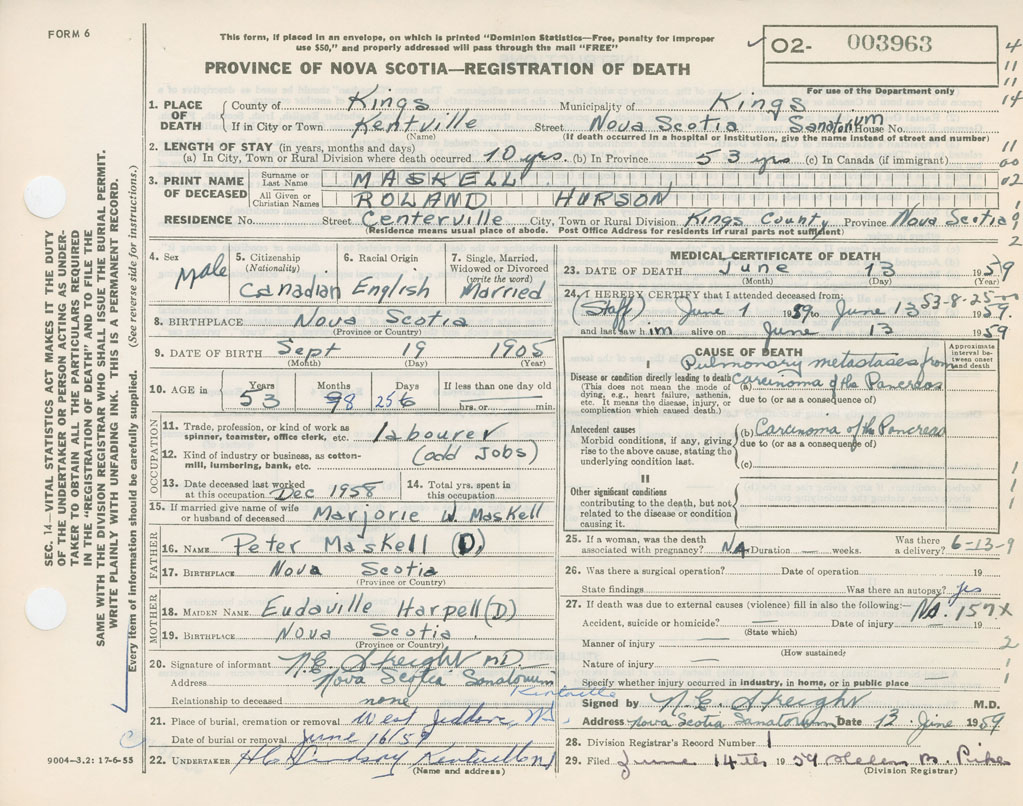 FORM 6
This form, if placed in an envelope, on which is printed "Dominion Statistics—Free, penalty for improper
use $50," and properly addressed will pass through the mail "FREE"
PROVINCE OF NOVA SCOTIA—REGISTRATION OF DEATH
02- 003963
For use of the Department only
4
11
11
14
1. PLACE OF DEATH
County of Kings Municipality of Kings
If in City or Town Kentville Street Nova Scotia Sanatorium House No.
(Name) (If death occurred in a hospital or institution, give the name instead of street and number)
2. LENGTH OF STAY (in years, months and days)
(a) In City, Town or Rural Division where death occurred 10 yrs. (b) In Province 53 yrs (c) In Canada (if immigrant)
11
00
3. PRINT NAME OF DECEASED
Surname or Last Name MASKELL
02
All Given or Christian Names ROLAND HURSON
1
RESIDENCE No. Street Centerville City, Town or Rural Division Kings County Province Nova Scotia
(Residence means usual place of abode. Post Office Address for residents in rural parts not sufficient)
2
4. Sex Male
5. Citizenship (Nationality) Canadian
6. Racial Origin English
7. Single, Married, Widowed or Divorced (write the word) Married
8. BIRTHPLACE Nova Scotia
(Province or Country)
9. DATE OF BIRTH Sept 19 1905
(Month) (Day) (Year)
10. AGE in Years Months Days If less than one day old
53 8 25 hrs. or min.
OCCUPATION
11. Trade, profession, or kind of work as spinner, teamster, office clerk, etc. labourer
12. Kind of industry or business, as cotton-mill, lumbering, bank, etc. (odd Jobs)
13. Date deceased last worked at this occupation Dec 1958
14. Total yrs. spent in this occupation
15. If married give name of wife or husband of deceased Marjorie W. Maskell
FATHER
16. NAME Peter Maskell (D)
17. BIRTHPLACE Nova Scotia
(Province or Country)
MOTHER
18. MAIDEN NAME Eudaville Harpell (D)
19. BIRTHPLACE Nova Scotia
(Province or Country)
20. Signature of informant MD
Address Nova Scotia Sanatorium Kentville
Relationship to deceased none
21. Place of burial, cremation or removal West Jeddore, NS
Date of burial or removal June 16/59
22. UNDERTAKER Kentville NS
(Name and address)
9004—3.2: 17-6-55
MEDICAL CERTIFICATE OF DEATH
23. DATE OF DEATH June 13 1959
(Month) (Day) (Year)
24. I HEREBY CERTIFY that I attended deceased from:
53-8-25-00
(Staff) June 1 1959 to June 13 1959.
and last saw him alive on June 13 1959
CAUSE OF DEATH
Approximate interval between onset and death
I
Pulmonary metastases from
Disease or condition directly leading to death (a) Carcinoma of the Pancreas
(This does not mean the mode of dying, e.g., heart failure, asthenia, etc. It means the disease, injury, or complication which caused death.)
due to (or as a consequence of)
Antecedent causes
Morbid conditions, if any, giving rise to the above cause, stating the underlying condition last.
(b) Carcinoma of the Pancreas
due to (or as a consequence of)
(c)
II
Other significant conditions
contributing to the death, but not related to the disease or condition causing it.
25. If a woman, was the death associated with pregnancy? NA Duration weeks. Was there a delivery? 6-13-9
26. Was there a surgical operation? Date of operation 19
State findings Was there an autopsy? yes
27. If death was due to external causes (violence) fill in also the following:— NA. 157X
Accident, suicide or homicide? Date of injury 19
(State which)
Manner of injury
(How sustained)
Nature of injury
Specify whether injury occurred in industry, in home, or in public place
Signed by M.D.
Address Nova Scotia Sanatorium Date 13 June 1959
28. Division Registrar's Record Number 1
29. Filed June 14th 1959 Helen B. Pike
(Division Registrar)
SEC. 14—VITAL STATISTICS ACT MAKES IT THE DUTY
OF THE UNDERTAKER OR PERSON ACTING AS UNDER-
TAKER TO OBTAIN ALL THE PARTICULARS REQUIRED
IN THE "REGISTRATION OF DEATH" AND TO FILE THE
SAME WITH THE DIVISION REGISTRAR WHO SHALL ISSUE THE BURIAL PERMIT.
WRITE PLAINLY WITH UNFADING INK. THIS IS A PERMANENT RECORD.
Every item of information should be carefully supplied. (See reverse side for instructions.)